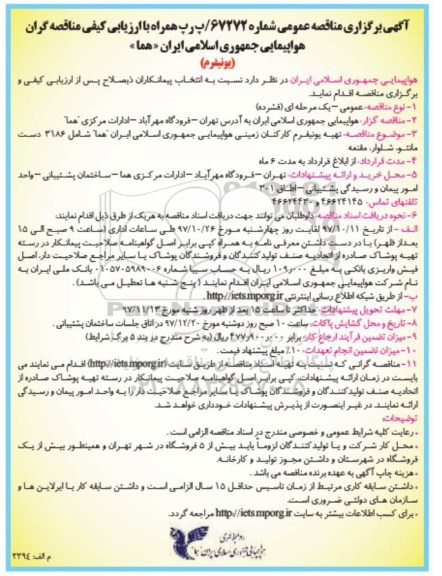 آگهی برگزاری مناقصه عمومی شماره ۶۷۲۷۲/پ رپ همراه با ارزیابی کیفی مناقصه گران
هواپیمایی جمهوری اسلامی ایران «هما»
(یونیفرم)
هواپیمایی جمهوری اسلامی ایران در نظر دارد نسبت به انتخاب پیمانکاران ذیصلاح پس از ارزیابی کیفی و
برگزاری مناقصه اقدام نماید.
۱- نوع مناقصه: عمومی – یک مرحله ای (فشرده)
۲- مناقصه گزار: هواپیمایی جمهوری اسلامی ایران به آدرس تهران – فرودگاه مهرآباد – ادارات مرکزی "هما"
۳- موضوع مناقصه: تهیه یونیفرم کارکنان زمینی هواپیمایی جمهوری اسلامی ایران "هما" شامل ۳۱۸۶ دست
مانتو، شلوار، مقنعه
۴- مدت قرارداد: از ابلاغ قرارداد به مدت ۶ ماه
۵- محل خرید و ارائه پیشنهادات: تهران – فرودگاه مهرآباد – ادارات مرکزی هما – ساختمان پشتیبانی – واحد
امور پیمان و رسیدگی پشتیبانی – اطاق ۳۰۱
تلفنهای تماس: ۴۶۶۲۴۱۴۵ – ۴۶۶۲۴۴۳۰
۶- نحوه دریافت اسناد مناقصه: داوطلبان می توانند جهت دریافت اسناد مناقصه به هریک از طرق ذیل اقدام نمایند:
الف – از تاریخ ۹۷/۱۰/۱۱ لغایت روز چهارشنبه مورخ ۹۷/۱۰/۲۶ طی ساعات اداری (ساعت ۹ صبح الی ۱۵
بعدازظهر) با در دست داشتن معرفی نامه به همراه کپی برابر اصل گواهینامه صلاحیت پیمانکار در رسته
تهیه پوشاک صادره از اتحادیه صنف تولید کنندگان و فروشندگان پوشاک یا سایر مراجع صلاحیت دار، اصل
فیش واریزی بانکی به مبلغ ۱۰۹۰۰۰۰ ریال به حساب سیبا شماره ۰۱۰۵۷۰۵۹۸۹۰۰۶ بانک ملی ایران به
نام شرکت هواپیمایی جمهوری اسلامی ایران اقدام نمایند (پنج شنبه ها تعطیل می باشد).
ب- از طریق شبکه اطلاع رسانی اینترنتی http://iets.mporg.ir
۷- مهلت تحویل پیشنهادات: حداکثر تا ساعت ۱۵ بعد از ظهر روز شنبه مورخ ۹۷/۱۱/۱۳
۸- تاریخ و محل گشایش پاکات: ساعت ۱۰ صبح روز دوشنبه مورخ ۹۷/۱۲/۲۰ در اتاق جلسات ساختمان پشتیبانی.
۹- میزان تضمین فرآیند ارجاع کار: برابر ریال (به شرح مندرج در بند ۵ برگ شرایط)
۱۰- میزان تضمین انجام تعهدات: ۱۰٪ مبلغ پیشنهاد قیمت.
۱۱- مناقصه گرانی که نسبت به تهیه اسناد مناقصه از طریق سایت (http://iets.mporg.ir) اقدام می نمایند می
بایست در زمان ارائه پیشنهادات، کپی برابر اصل گواهینامه صلاحیت پیمانکار در رسته تهیه پوشاک صادره از
اتحادیه صنف تولید کنندگان و فروشندگان پوشاک یا سایر مراجع صلاحیت دار را به واحد امور پیمان و رسیدگی
ارائه نمایند. در غیر اینصورت از پذیرش پیشنهادات خودداری خواهد شد.
توضیحات:
• رعایت کلیه شرایط عمومی و خصوصی مندرج در اسناد مناقصه الزامی است.
• محل کار شرکت و یا تولید کنندگان لزوماً باید بیش از ۵ فروشگاه در شهر تهران و همینطور بیش از یک
فروشگاه در شهرستان و داشتن مجوز تولید و کارخانه.
• هزینه چاپ آگهی به عهده برنده مناقصه می باشد.
• داشتن سابقه کاری مرتبط از زمان تاسیس حداقل ۱۵ سال الزامی است و داشتن سابقه کار با ایرلاین ها و
سازمان های دولتی ضروری است.
• برای کسب اطلاعات بیشتر به سایت http://iets.mporg.ir مراجعه گردد.
روابط عمومی
هواپیمایی جمهوری اسلامی ایران "هما"
م الف: ۳۳۹۴